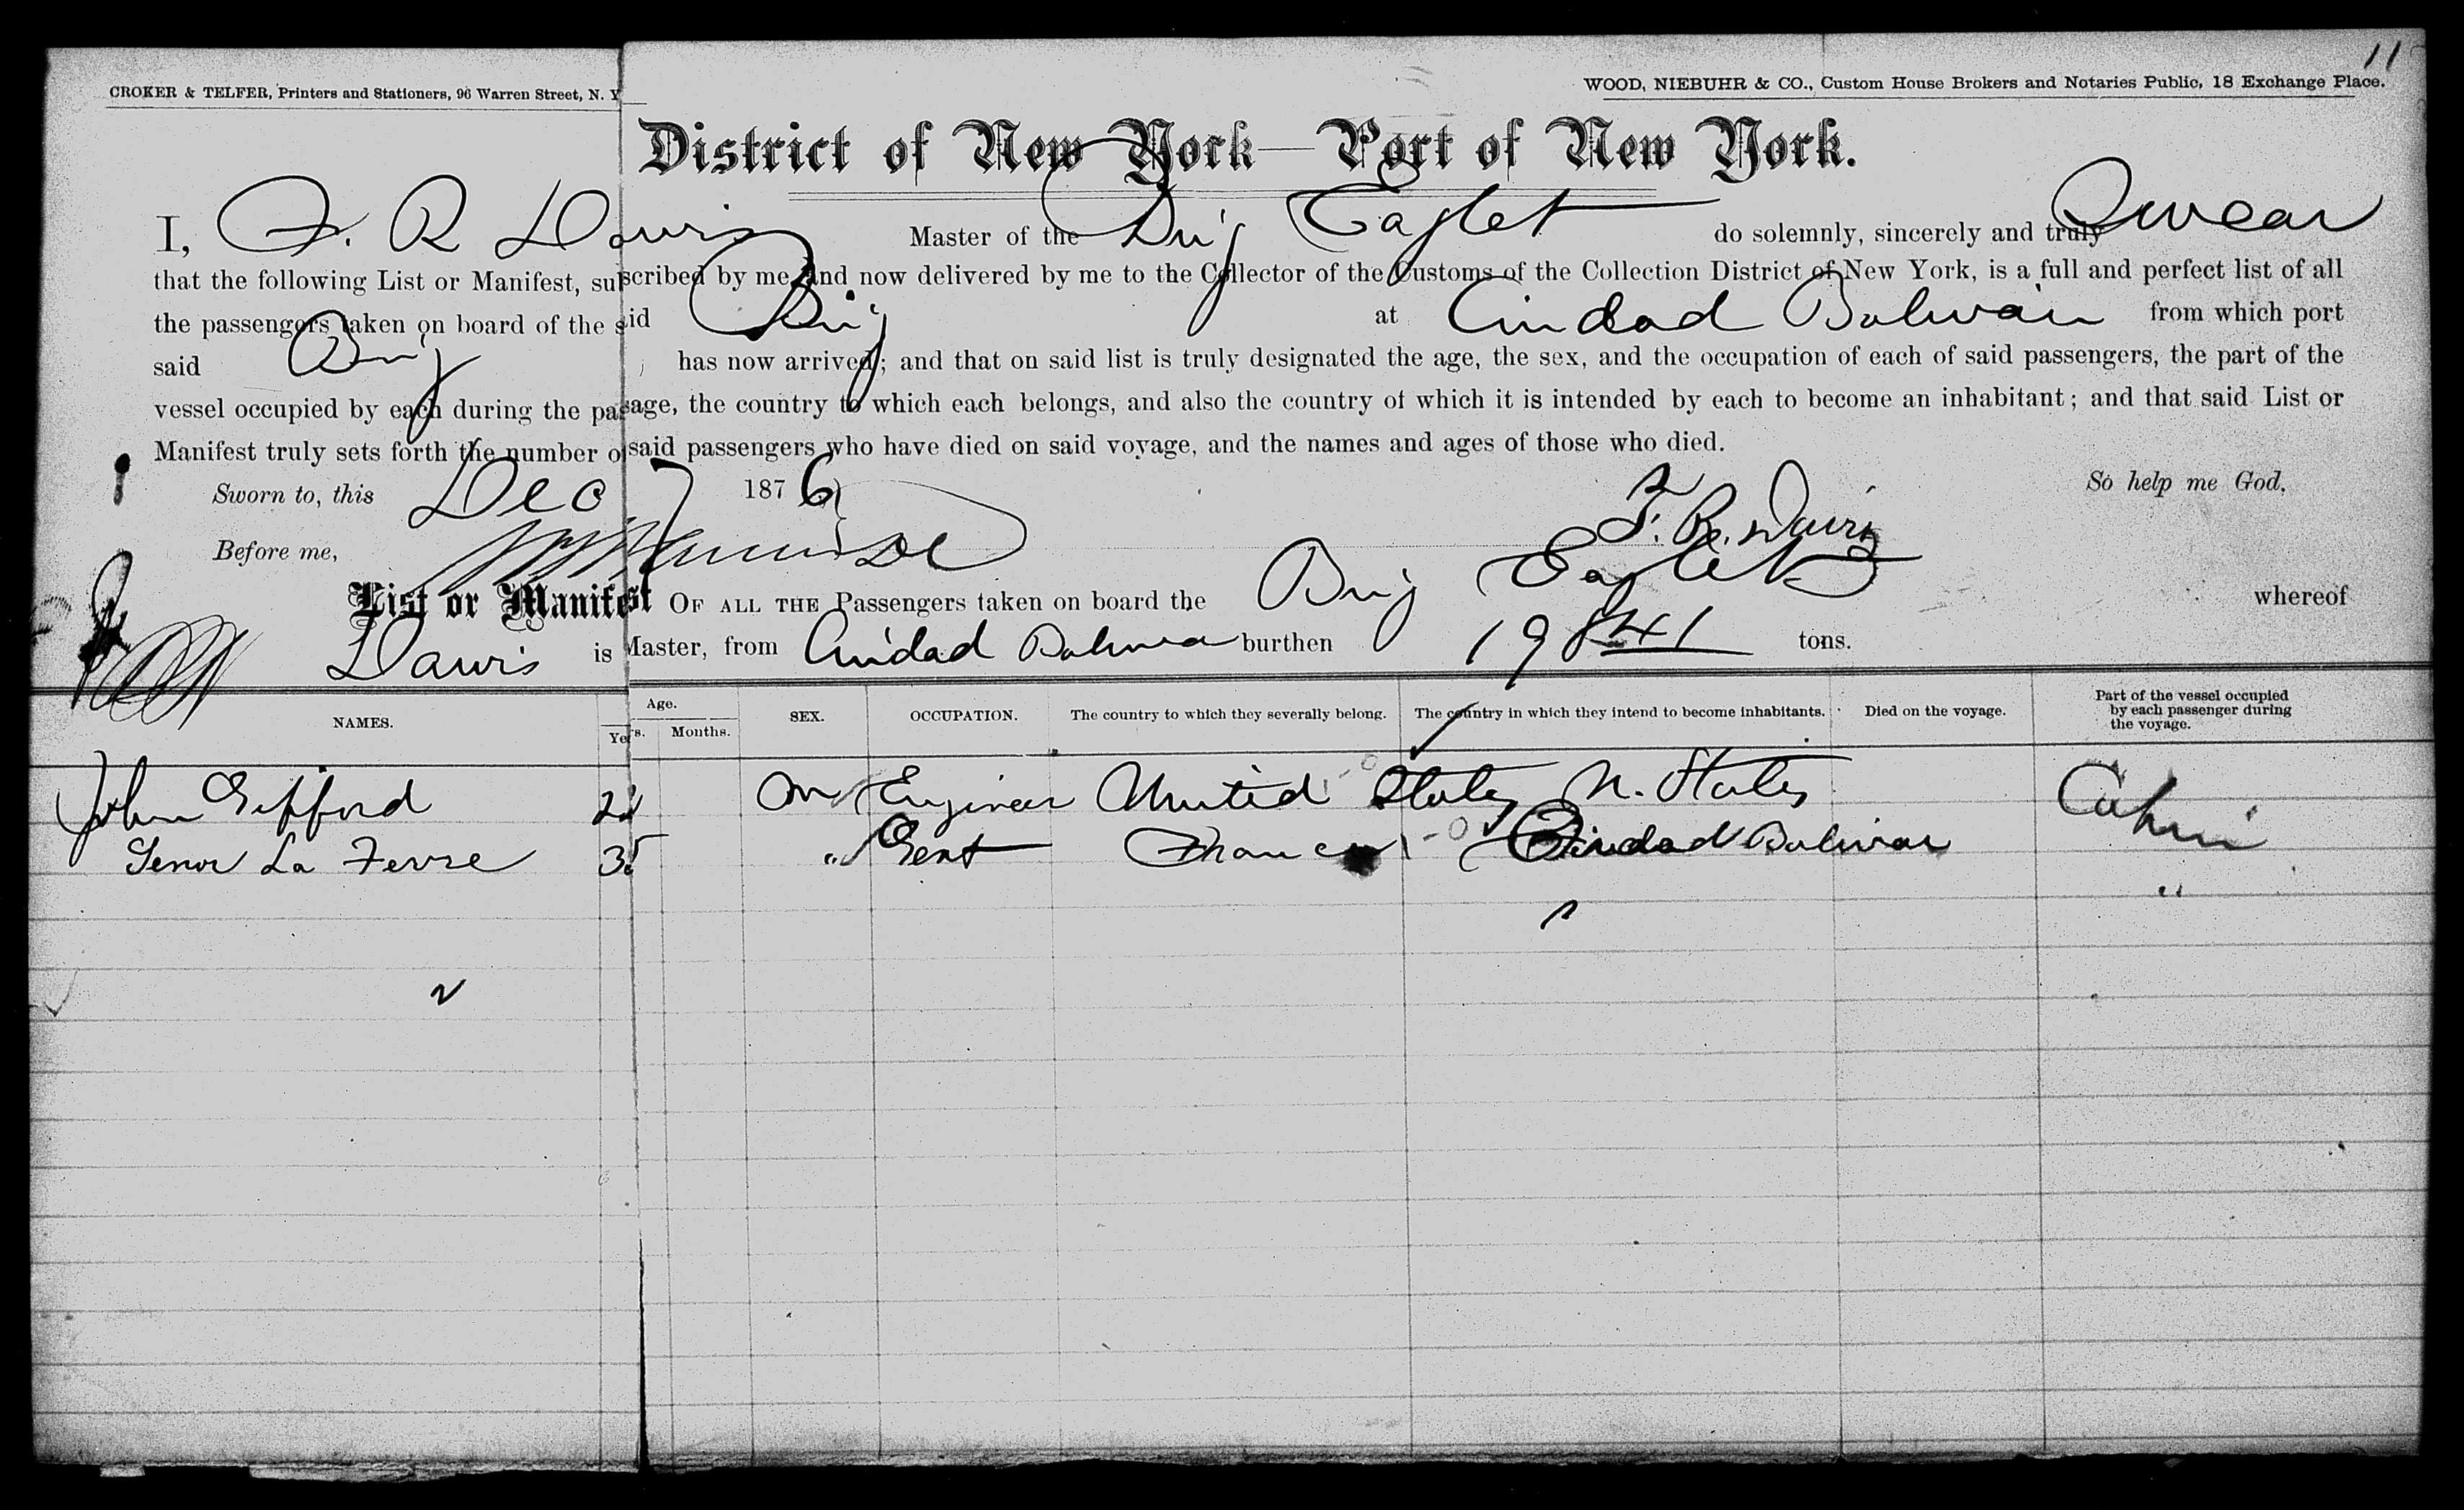 11
CROKER & TELFER, Printers and Stationers, 96 Warren Street, N. Y
WOOD, NIEBUHR & CO., Custom House Brokers and Notaries Public, 18 Exchange Place.
District of New York—Port of New York.
I, F. R Davis Master of the Brig Eaglet do solemnly, sincerely and truly Swear
that the following List or Manifest, subscribed by me and now delivered by me to the Collector of the Customs of the Collection District of New York, is a full and perfect list of all
the passengers taken on board of the said Brig at Ciudad Bolivar from which port
said Brig has now arrived; and that on said list is truly designated the age, the sex, and the occupation of each of said passengers, the part of the
vessel occupied by each during the passage, the country to which each belongs, and also the country of which it is intended by each to become an inhabitant; and that said List or
Manifest truly sets forth the number of said passengers who have died on said voyage, and the names and ages of those who died.
Sworn to, this Dec 7 1876 So help me God,
F. R. Davis
Before me,
List or Manifest OF ALL THE Passengers taken on board the Brig Eaglet whereof
Davis is Master, from Ciudad Bolivar burthen 198 41 tons.
NAMES. Age. Yers. Months. SEX. OCCUPATION. The country to which they severally belong. The country in which they intend to become inhabitants. Died on the voyage. Part of the vessel occupied by each passenger during the voyage.
John Gifford M Engineer United States U. States Cabin
Senor La Ferre 35 " Gent France Ciudad Bolivar "
2